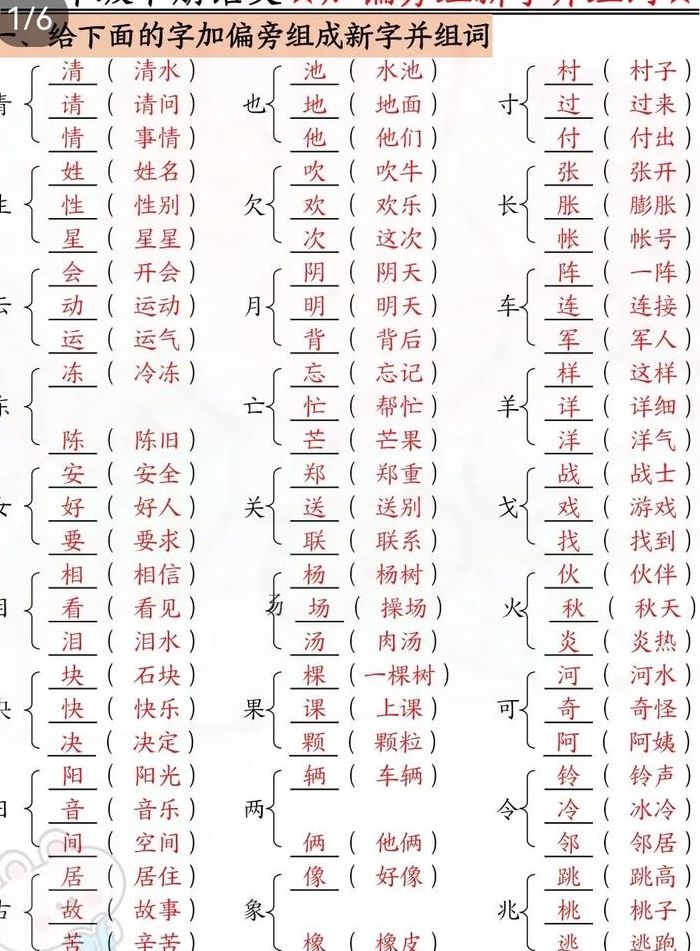 1/6
一、给下面的字加偏旁组成新字并组词
清（清水） 池（水池） 村（村子）
青 请（请问） 也 地（地面） 寸 过（过来）
情（事情） 他（他们） 付（付出）
姓（姓名） 吹（吹牛） 张（张开）
生 性（性别） 欠 欢（欢乐） 长 胀（膨胀）
星（星星） 次（这次） 帐（帐号）
会（开会） 阴（阴天） 阵（一阵）
云 动（运动） 月 明（明天） 车 连（连接）
运（运气） 背（背后） 军（军人）
冻（冷冻） 忘（忘记） 样（这样）
东 亡 忙（帮忙） 羊 详（详细）
陈（陈旧） 芒（芒果） 洋（洋气）
安（安全） 郑（郑重） 战（战士）
女 好（好人） 关 送（送别） 戈 戏（游戏）
要（要求） 联（联系） 找（找到）
相（相信） 杨（杨树） 伙（伙伴）
目 看（看见） 场（操场） 火 秋（秋天）
泪（泪水） 汤（肉汤） 炎（炎热）
块（石块） 棵（一棵树） 河（河水）
夬 快（快乐） 果 课（上课） 可 奇（奇怪）
决（决定） 颗（颗粒） 阿（阿姨）
阳（阳光） 辆（车辆） 铃（铃声）
日 音（音乐） 两 令 冷（冰冷）
间（空间） 俩（他俩） 邻（邻居）
居（居住） 像（好像） 跳（跳高）
古 故（故事） 象 兆 桃（桃子）
苦（辛苦） 橡（橡皮） 逃（逃跑）